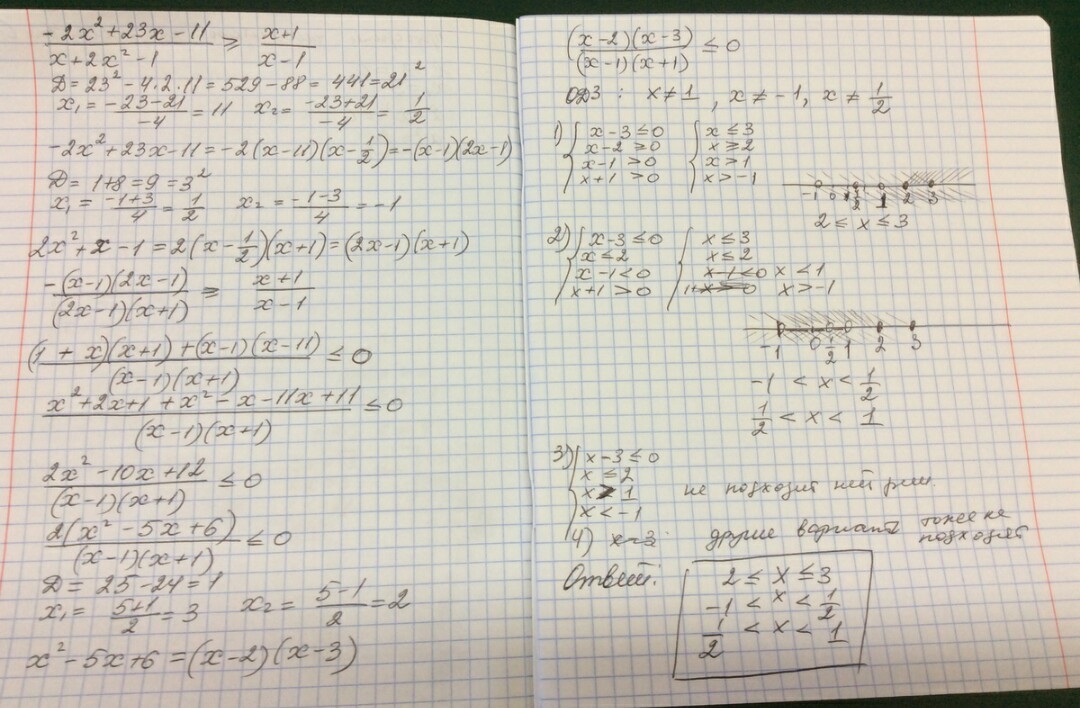 (-2x² + 23x - 11)/(x + 2x² - 1) ≥ (x+1)/(x-1)
D = 23² - 4·2·11 = 529 - 88 = 441 = 21²
x₁ = (-23-21)/(-4) = 11 x₂ = (-23+21)/(-4) = 1/2
-2x² + 23x - 11 = -2(x-11)(x-1/2) = -(x-1)(2x-1)
D = 1+8 = 9 = 3²
x₁ = (-1+3)/4 = 1/2 x₂ = (-1-3)/4 = -1
2x² + x - 1 = 2(x-1/2)(x+1) = (2x-1)(x+1)
(-(x-1)(2x-1))/((2x-1)(x+1)) ≥ (x+1)/(x-1)
((1+x)(x+1) + (x-1)(x-11))/((x-1)(x+1)) ≤ 0
(x² + 2x + 1 + x² - x - 11x + 11)/((x-1)(x+1)) ≤ 0
(2x² - 10x + 12)/((x-1)(x+1)) ≤ 0
(2(x² - 5x + 6))/((x-1)(x+1)) ≤ 0
D = 25 - 24 = 1
x₁ = (5+1)/2 = 3 x₂ = (5-1)/2 = 2
x² - 5x + 6 = (x-2)(x-3)
((x-2)(x-3))/((x-1)(x+1)) ≤ 0
ОДЗ: x ≠ 1, x ≠ -1, x ≠ 1/2
1) { x-3 ≤ 0 { x ≤ 3
x-2 ≥ 0 x ≥ 2
x-1 > 0 x > 1
x+1 > 0 x > -1
-1 0 1/2 1 2 3
2 ≤ x ≤ 3
2) { x-3 ≤ 0 { x ≤ 3
x ≤ 2 x ≤ 2
x-1 < 0 x-1 < 0 x < 1
x+1 > 0 x > -1
-1 0 1/2 1 2 3
-1 < x < 1/2
1/2 < x < 1
3) { x-3 ≤ 0
x ≤ 2
x > 1 не подходит
x < -1
4) x-3 другие варианты тоже не подходят
Ответ:
2 ≤ x ≤ 3
-1 < x < 1/2
1/2 < x < 1